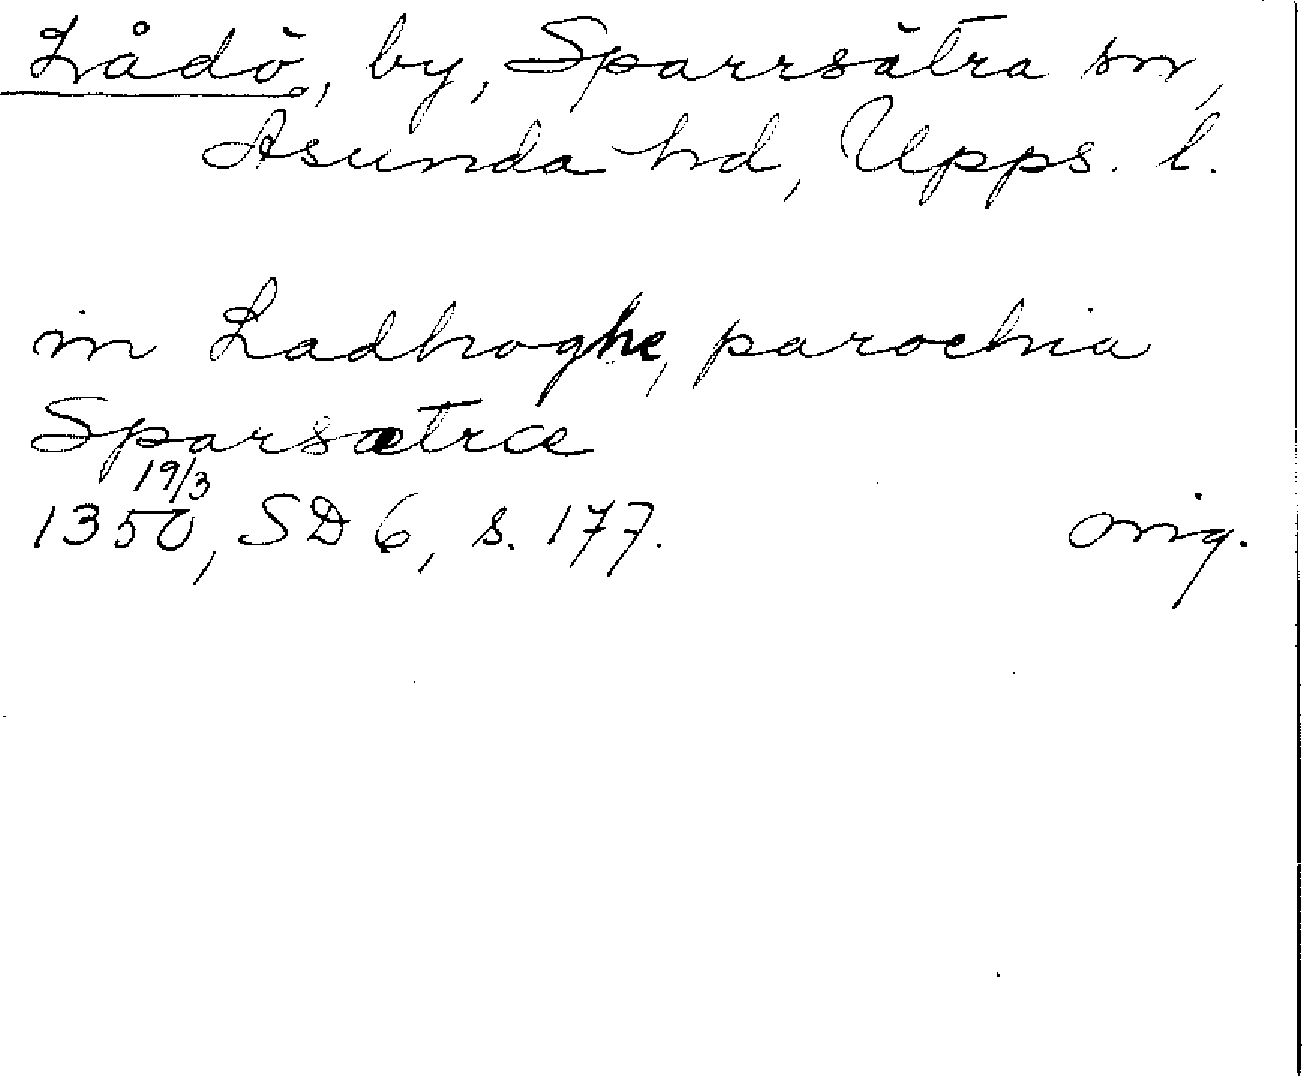 Lådö, by, Sparrsätra sn,
Åsunda hd, Upps. l.
in Ladhoghe, parochia
Sparsætræ
19/3
1350, SD 6, s. 177. orig.